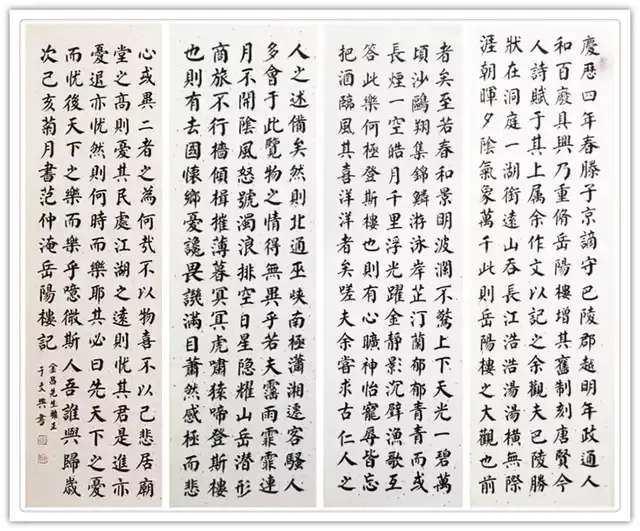 慶歷四年春滕子京謫守巴陵郡越明年政通人
和百廢具興乃重脩岳陽樓增其舊制刻唐賢今
人詩賦于其上属余作文以記之余觀夫巴陵勝
狀在洞庭一湖銜遠山吞長江浩浩湯湯橫無際
涯朝暉夕陰氣象萬千此則岳陽樓之大觀也前
者矣至若春和景明波瀾不驚上下天光一碧萬
頃沙鷗翔集錦鱗游泳岸芷汀蘭郁郁青青而或
長煙一空皓月千里浮光躍金静影沉璧漁歌互
答此樂何極登斯樓也則有心曠神怡寵辱皆忘
把酒臨風其喜洋洋者矣嗟夫余嘗求古仁人之
人之述備矣然則北通巫峽南極瀟湘遠客騷人
多會于此覽物之情得無異乎若夫霪雨霏霏連
月不開陰風怒號濁浪排空日星隱耀山岳潛形
商旅不行檣傾楫摧薄暮冥冥虎嘯猿啼登斯樓
也則有去國懷鄉憂讒畏譏滿目蕭然感極而悲
心或異二者之為何哉不以物喜不以己悲居廟
堂之高則憂其民處江湖之遠則忧其君是進亦
憂退亦忧然則何時而樂耶其必曰先天下之憂
而忧後天下之樂而樂乎噫微斯人吾誰與歸歲
次己亥菊月書范仲淹岳陽樓記
金昌先生雅正
于文興書